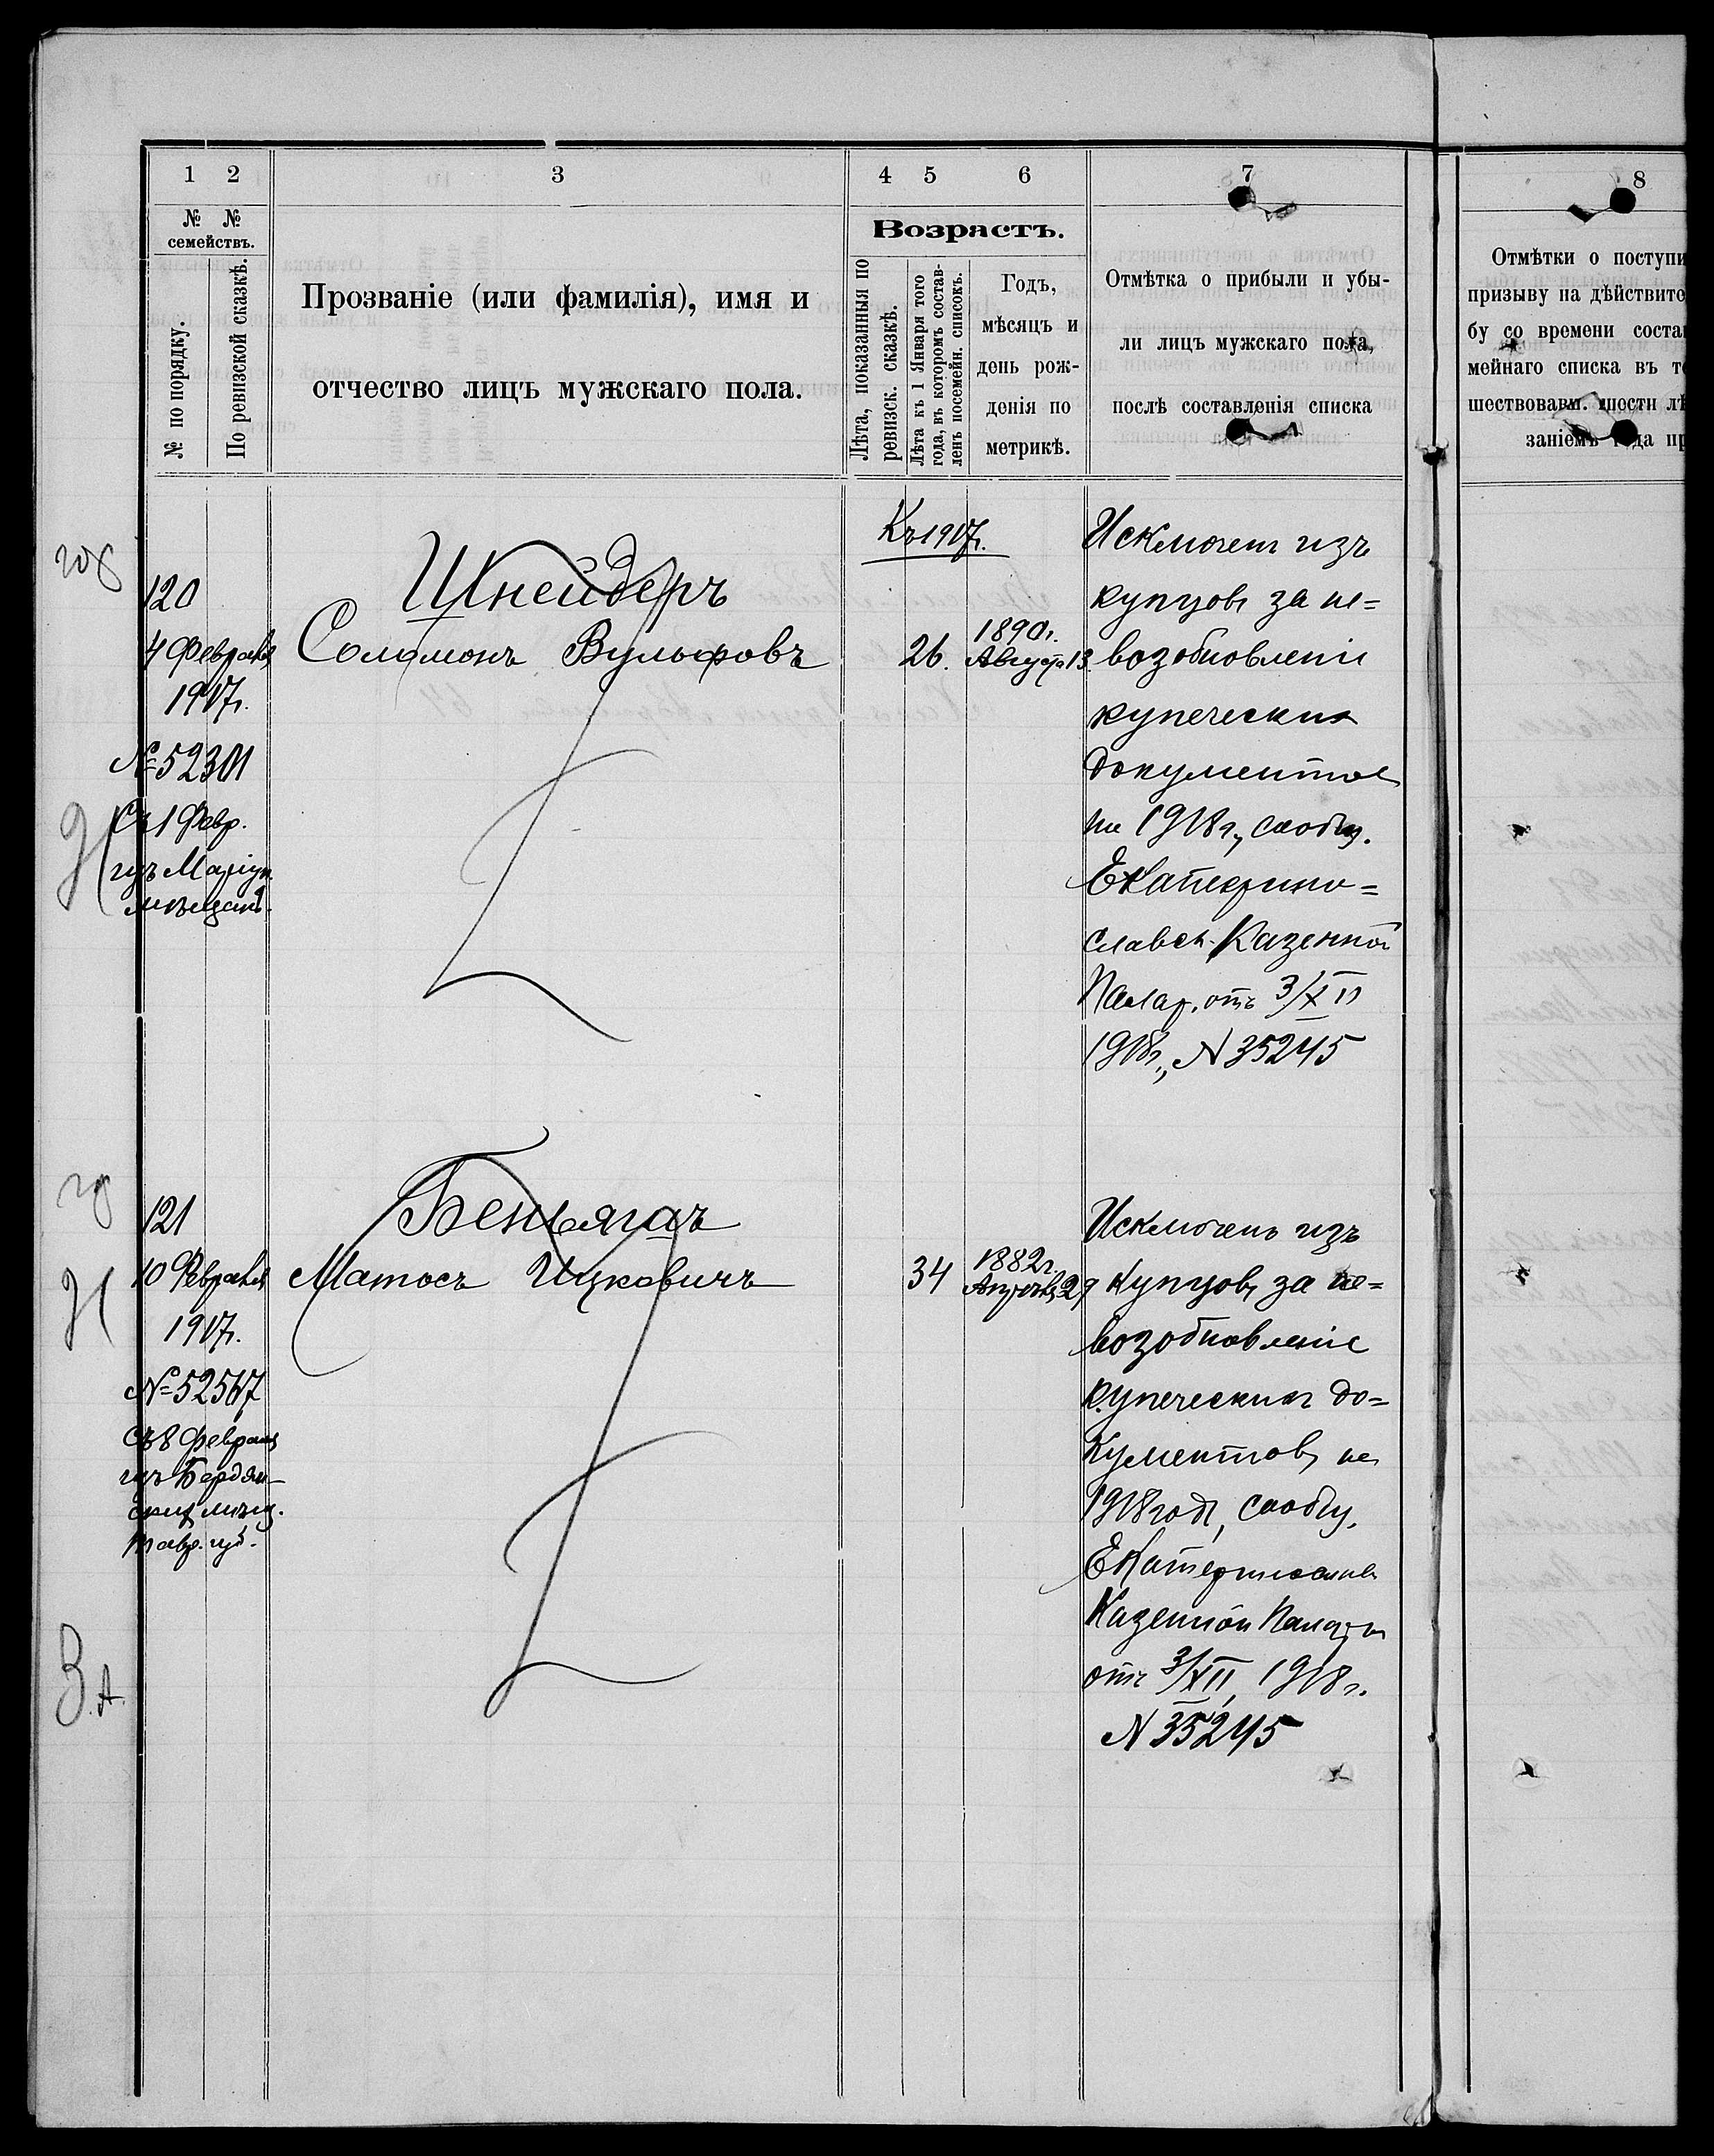 1 2 3 4 5 6 7 8
№ № семействъ.
№ по порядку.
По ревизской сказкѣ.
Прозваніе (или фамилія), имя и
отчество лицъ мужскаго пола.
Возрастъ.
Лѣта, показанныя по
ревизск. сказкѣ.
Лѣта къ 1 Января того
года, въ которомъ состав-
ленъ посемейн. списокъ.
Годъ,
мѣсяцъ и
день рож-
денія по
метрикѣ.
Отмѣтка о прибыли и убы-
ли лицъ мужскаго пола,
послѣ составленія списка
Отмѣтки о поступи
призыву на дѣйствите
бу со времени соста
мейнаго списка въ т
шествовавш. шести лѣ
заніемъ года пр
Къ 1917г.
120
4 Февраля
1917г.
№ 52301
Съ 1 Февр.
изъ Маріуп.
мѣщанъ.
Шнейдеръ
Соломонъ Вульфовъ
26.
1890г.
Августа 13.
Исключенъ изъ
купцовъ за не=
возобновленіе
купеческихъ
документовъ
на 1918г., сообщ.
Екатерино=
славск. Казенной
Палат. отъ 3/XII
1918г., N 35245
121
10 Февраля
1917г.
№ 52567
Съ 8 Февраля
изъ Бердян-
скихъ мѣщ.
Тавр. губ.
Беньягаъ
Матосъ Ицковичъ
34
1882г.
Апрѣля 29
Исключенъ изъ
купцовъ за не=
возобновленіе
купеческихъ до=
кументовъ на
1918 годъ, сообщ.
Екатеринославск
Казенной Палаты
отъ 3/XII 1918г.
N 35245